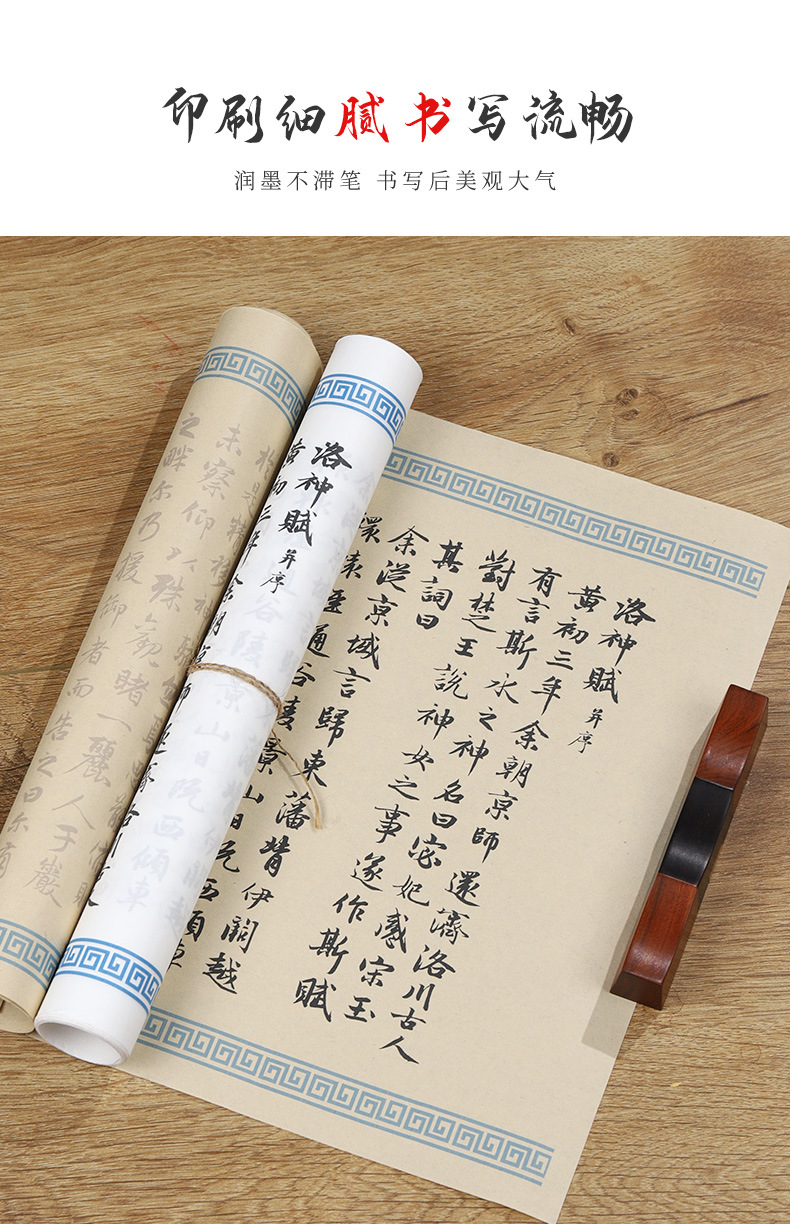 印刷细腻书写流畅
润墨不滞笔 书写后美观大气
洛神賦 并序
黄初三年余朝京師還濟洛川古人
有言斯水之神名曰宓妃感宋玉
對楚王說神女之事遂作斯賦
其詞曰
余従京域言歸東藩背伊闕越
轘轅經通谷陵景山日既西傾車
洛神賦 并序
黄初三年余朝京師還濟洛川
未察仰以殊觀睹一麗人于巖
之畔尔乃援御者而告之曰尔有